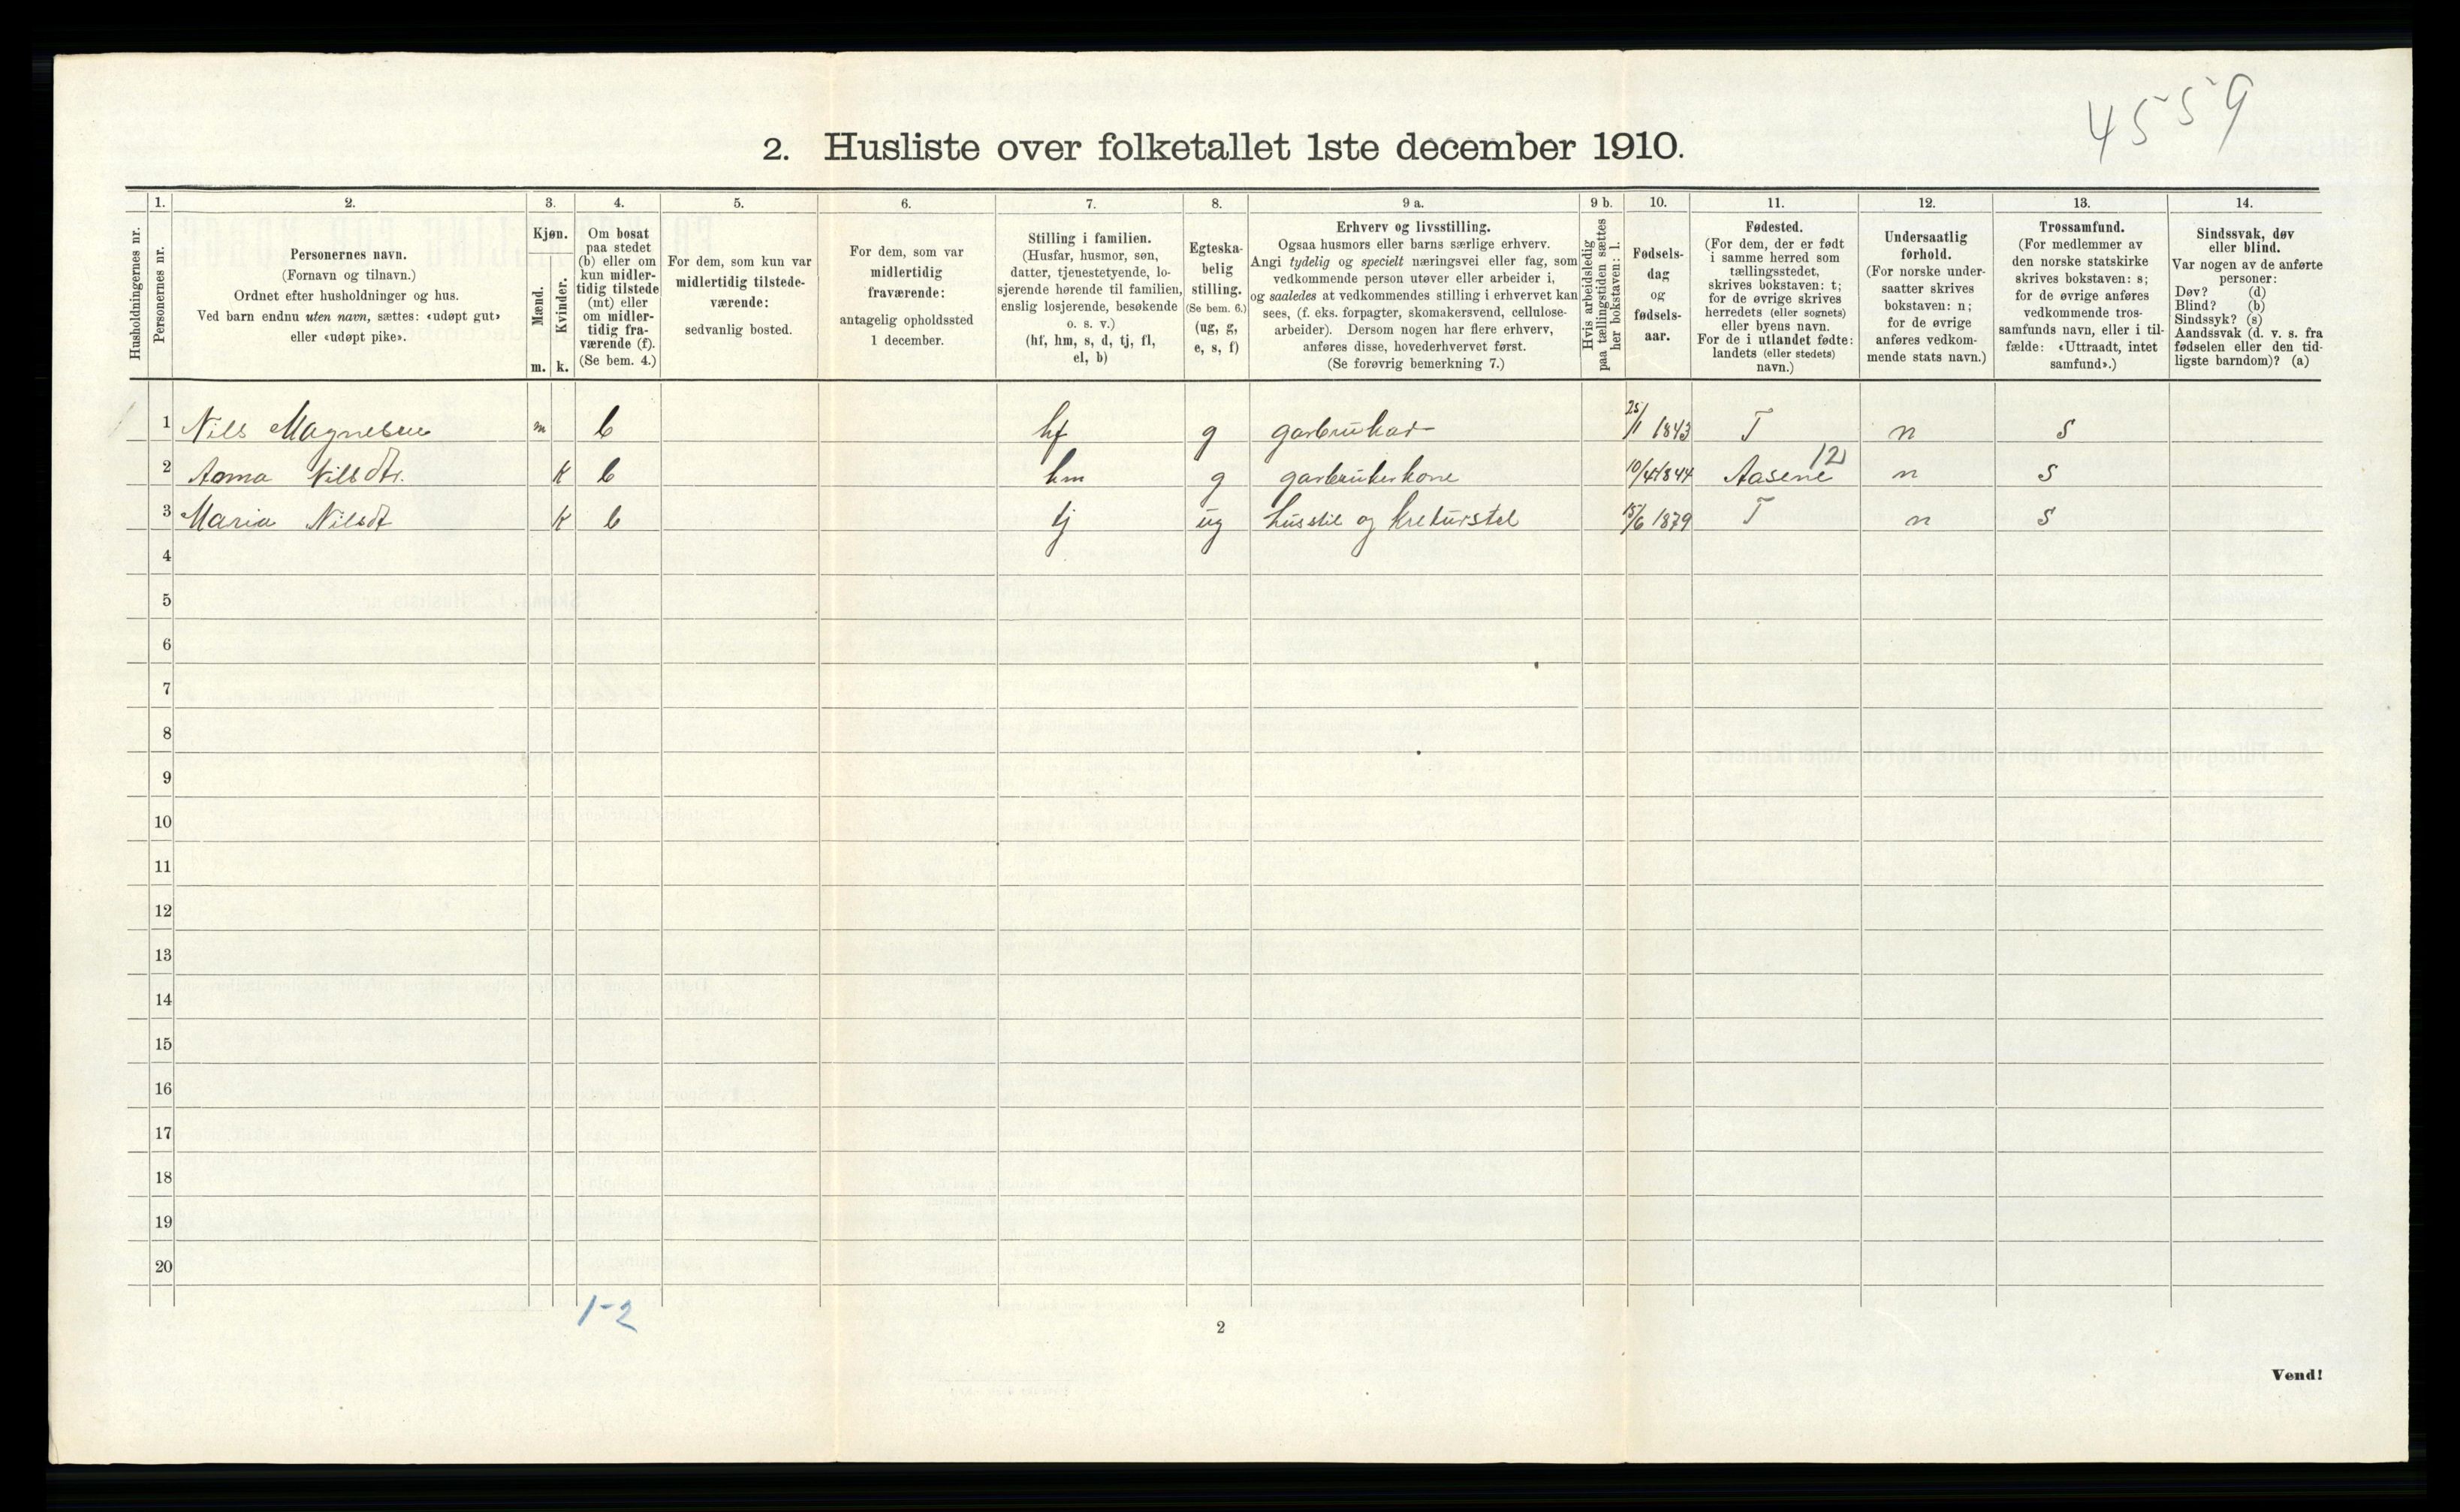 4559
2. Husliste over folketallet 1ste december 1910.
Husholdningernes nr.
1.
Personernes nr.
2.
Personernes navn.
(Fornavn og tilnavn.)
Ordnet efter husholdninger og hus.
Ved barn endnu uten navn, sættes: «udøpt gut»
eller «udøpt pike».
3.
Kjøn.
Mænd.
m.
Kvinder.
k.
4.
Om bosat
paa stedet
(b) eller om
kun midler-
tidig tilstede
(mt) eller
om midler-
tidig fra-
værende (f).
(Se bem. 4.)
5.
For dem, som kun var
midlertidig tilstede-
værende:
sedvanlig bosted.
6.
For dem, som var
midlertidig
fraværende:
antagelig opholdssted
1 december.
7.
Stilling i familien.
(Husfar, husmor, søn,
datter, tjenestetyende, lo-
sjerende hørende til familien,
enslig losjerende, besøkende
o. s. v.)
(hf, hm, s, d, tj, fl,
el, b)
8.
Egteska-
belig
stilling.
(Se bem. 6.)
(ug, g,
e, s, f)
9 a.
Erhverv og livsstilling.
Ogsaa husmors eller barns særlige erhverv.
Angi tydelig og specielt næringsvei eller fag, som
vedkommende person utøver eller arbeider i,
og saaledes at vedkommendes stilling i erhvervet kan
sees, (f. eks. forpagter, skomakersvend, cellulose-
arbeider). Dersom nogen har flere erhverv,
anføres disse, hovederhvervet først.
(Se forøvrig bemerkning 7.)
9 b.
Hvis arbeidsledig
paa tællingstiden sættes
her bokstaven: l.
10.
Fødsels-
dag
og
fødsels-
aar.
11.
Fødested.
(For dem, der er født
i samme herred som
tællingsstedet,
skrives bokstaven: t;
for de øvrige skrives
herredets (eller sognets)
eller byens navn.
For de i utlandet fødte:
landets (eller stedets)
navn.)
12.
Undersaatlig
forhold.
(For norske under-
saatter skrives
bokstaven: n;
for de øvrige
anføres vedkom-
mende stats navn.)
13.
Trossamfund.
(For medlemmer av
den norske statskirke
skrives bokstaven: s;
for de øvrige anføres
vedkommende tros-
samfunds navn, eller i til-
fælde: «Uttraadt, intet
samfund».)
14.
Sindssvak, døv
eller blind.
Var nogen av de anførte
personer:
Døv? (d)
Blind? (b)
Sindssyk? (s)
Aandssvak (d. v. s. fra
fødselen eller den tid-
ligste barndom)? (a)
1 Nils Magnesen m b hf g garbrukar 25/1 1843 T n s
2 Anna Nilsdtr. K b hm g garbrukerkone 10/4 1844 Aasene 12 n s
3 Maria Nilsdt K b tj ug husstel og kreturstel 15/6 1879 T n s
4
5
6
7
8
9
10
11
12
13
14
15
16
17
18
19
20
1-2
2
Vend!